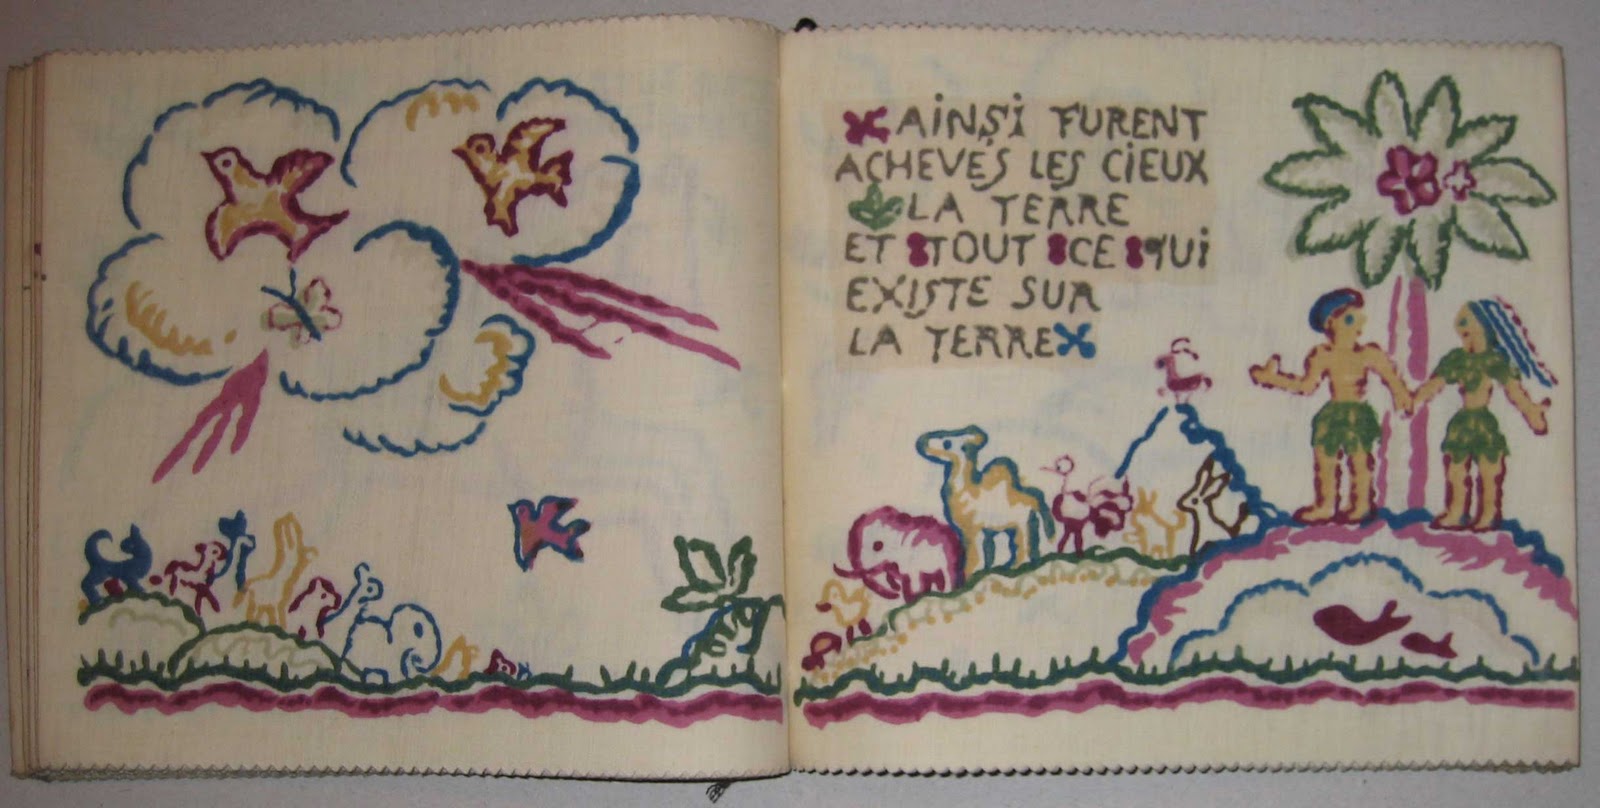 AINSI FURENT
ACHEVÉS LES CIEUX
LA TERRE
ET TOUT CE QUI
EXISTE SUR
LA TERRE